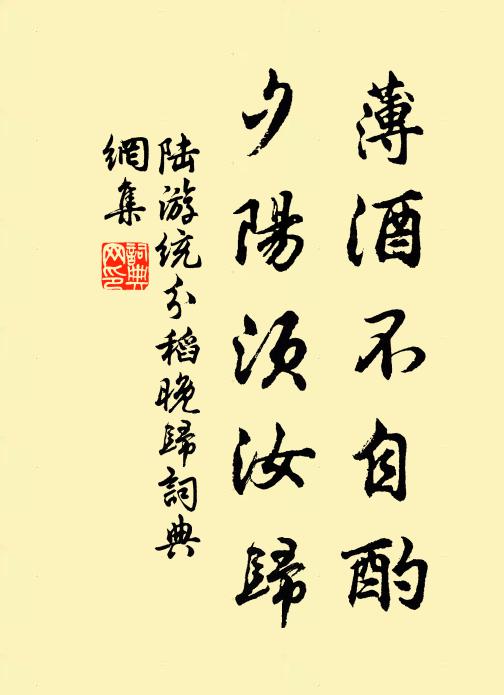 薄酒不自酌
夕陽須汝歸
陸游統分稻晚歸詞典
網集
詞典
网印